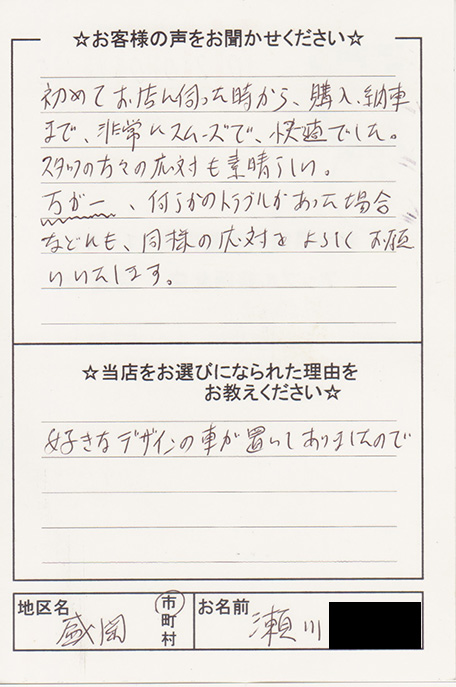 ☆お客様の声をお聞かせください☆
初めてお店に伺った時から、購入、納車
まで、非常にスムーズで、快適でした。
スタッフの方々の応対も素晴らしい。
万が一、何らかのトラブルがあった場合
などにも、同様の応対をよろしくお願
いいたします。
☆当店をお選びになられた理由を
お教えください☆
好きなデザインの車が置いてありましたので
地区名 盛岡 市町村 お名前 瀬川